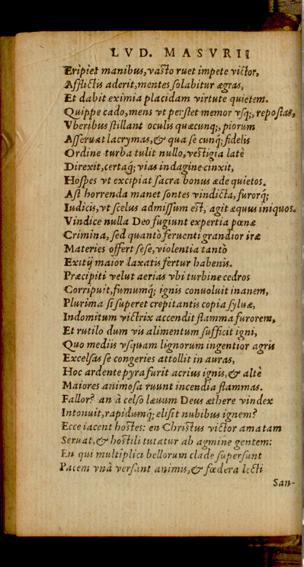 LVD. MASVRII
Eripiet manibus, vasto ruet impete victor,
Afflictis aderit, mentes solabitur ægras,
Et dabit eximia placidam virtute quietem.
Quippe cado, mens vt perstet memor vsq;, repostas,
Vberibus stillant oculis quæcunq;, piorum
Asseruat lacrymas, & qua se cunq; fidelis
Ordine turba tulit nullo, vestigia latè
Direxit, certaq; vias indagine cinxit,
Hospes vt excipiat sacra bonus æde quietos.
Ast horrenda manet sontes vindicta, furorq;
Iudicis, vt scelus admissum est, agit æquus iniquos.
Vindice nulla Deo fugiunt expertia pœnæ
Crimina, sed quantò feruenti grandior iræ
Materies offert sese, violentia tantò
Exitij maior laxatis fertur habenis.
Præcipiti velut aerias vbi turbine cedros
Corripuit, fumumq; ignis conuoluit inanem,
Plurima si superet crepitantis copia syluæ,
Indomitum victrix accendit flamma furorem,
Et rutilo dum vis alimentum sufficit igni,
Quo mediis vsquam lignorum ingentior agris
Excelsas se congeries attollit in auras,
Hoc ardente pyra furit acrius ignis, & altè
Maiores animosa ruunt incendia flammas.
Fallor? an à celso læuum Deus æthere vindex
Intonuit, rapidumq; elisit nubibus ignem?
Ecce iacent hostes: en Christus victor amatam
Seruat, & hostili tutatur ab agmine gentem:
En qui multiplici bellorum clade supersunt
Pacem vnà versant animis, & fœdera lecti
San-